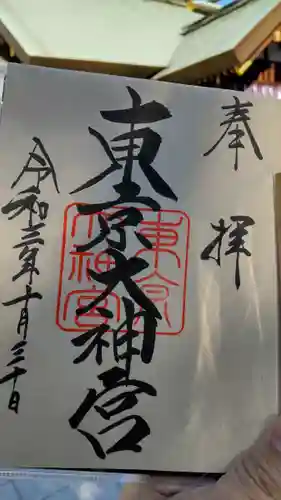 奉拝
東京大神宮
令和三年十月三十日
東京
大神宮